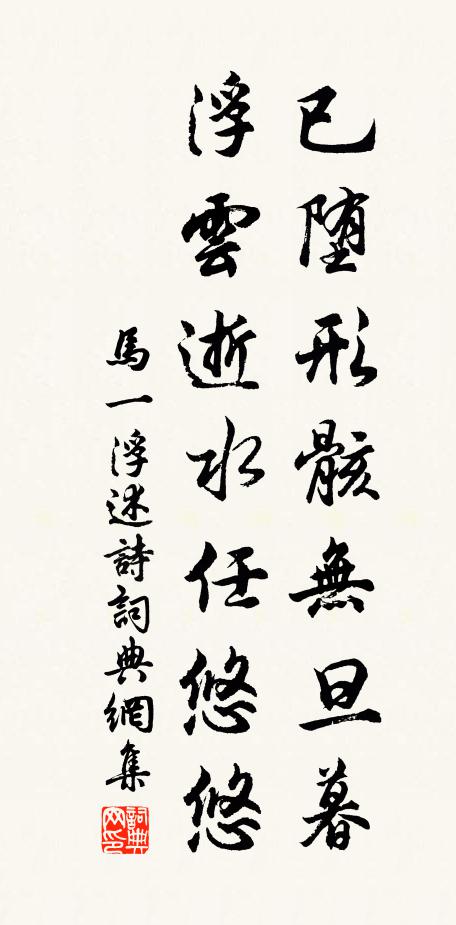 已堕形骸無旦暮
浮雲逝水任悠悠
馬一浮述詩詞典網集
詞典网印